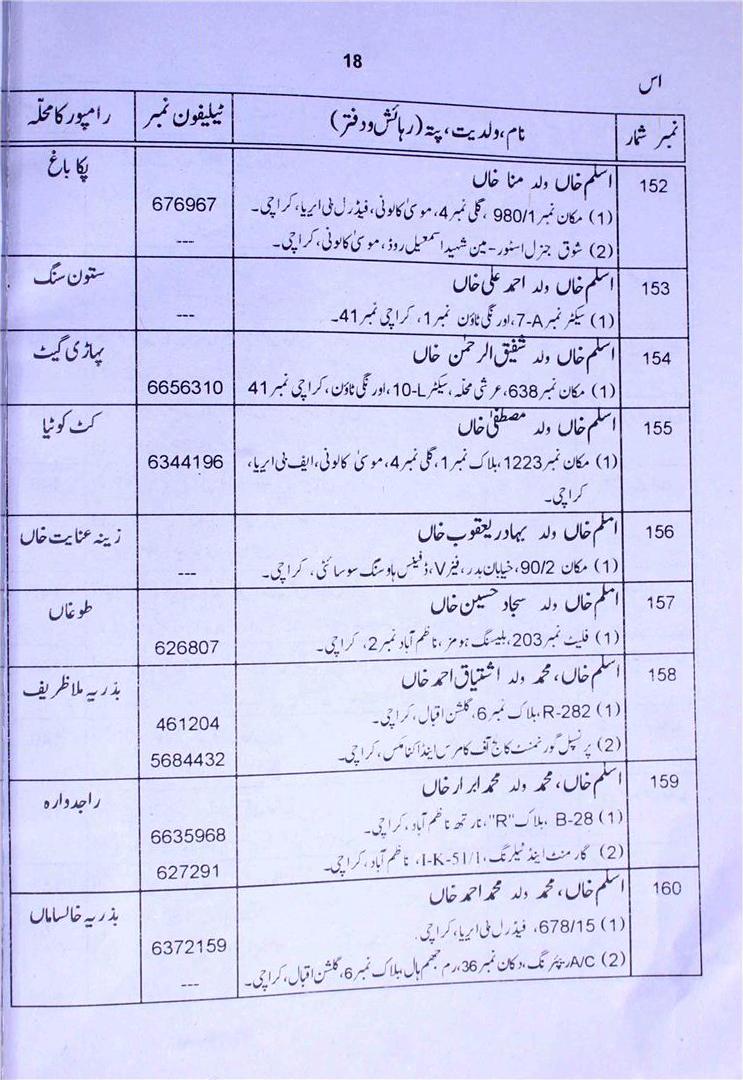 18
اس
نمبر شمار | نام، ولدیت، پتہ (رہائش و دفتر) | ٹیلیفون نمبر | رامپور کا محلّہ
152 | اسلم خاں ولد منا خاں | پکا باغ
(1) مکان نمبر 980/1، گلی نمبر 4، موسیٰ کالونی، فیڈرل بی ایریا، کراچی۔ | 676967
(2) شوق جنرل اسٹور - مین شہید اسمعیل روڈ، موسیٰ کالونی، کراچی۔ | ---
153 | اسلم خاں ولد احمد علی خاں | ستون سنگ
(1) سیکٹر نمبر 7-A، اورنگی ٹاؤن نمبر 1، کراچی نمبر 41۔ | ---
154 | اسلم خاں ولد شفیق الرحمٰن خاں | پہاڑی گیٹ
(1) مکان نمبر 638، عرشی محلہ، سیکٹر 10-L، اورنگی ٹاؤن، کراچی نمبر 41 | 6656310
155 | اسلم خاں ولد مصطفیٰ خاں | کٹ کوئیا
(1) مکان نمبر 1223، بلاک نمبر 1، گلی نمبر 4، موسیٰ کالونی، ایف بی ایریا، | 6344196
کراچی۔
156 | اسلم خاں ولد بہادر یعقوب خاں | زینہ عنایت خاں
(1) مکان 90/2، خیابان بدر، فیز V، ڈفینس ہاوسنگ سوسائٹی، کراچی۔ | ---
157 | اسلم خاں ولد سجاد حسین خاں | طوغاں
(1) فلیٹ نمبر 203، بلیسنگ ہومز، ناظم آباد نمبر 2، کراچی۔ | 626807
158 | اسلم خاں، محمد ولد اشتیاق احمد خاں | بذریہ ملا ظریف
(1) R-282، بلاک نمبر 6، گلشن اقبال، کراچی۔ | 461204
(2) پرنسپل گورنمنٹ کالج آف کامرس اینڈ اکنامکس، کراچی۔ | 5684432
159 | اسلم خاں، محمد ولد محمد ابرار خاں | راجدوارہ
(1) B-28، بلاک "R"، نارتھ ناظم آباد، کراچی۔ | 6635968
(2) گارمنٹ اینڈ ٹیلرنگ، I-K-51/1، ناظم آباد، کراچی۔ | 627291
160 | اسلم خاں، محمد ولد محمد احمد خاں | بذریہ خانساماں
(1) 678/15، فیڈرل بی ایریا، کراچی۔ | 6372159
(2) A/C رپیئرنگ، دکان نمبر 36، رم جھم ہال، بلاک نمبر 6، گلشن اقبال، کراچی۔ | ---